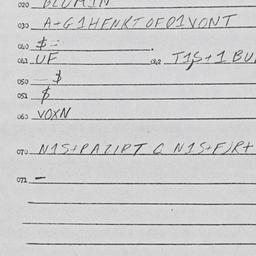 020 BLUMIN
030 A+G1HFNKTOFO1VONT
040 $=
041 UF 042 T1S+1BU
050 - $
051 $
060 VOXN
070 N1S+PAZIPT C N1S+F)R+
071 -